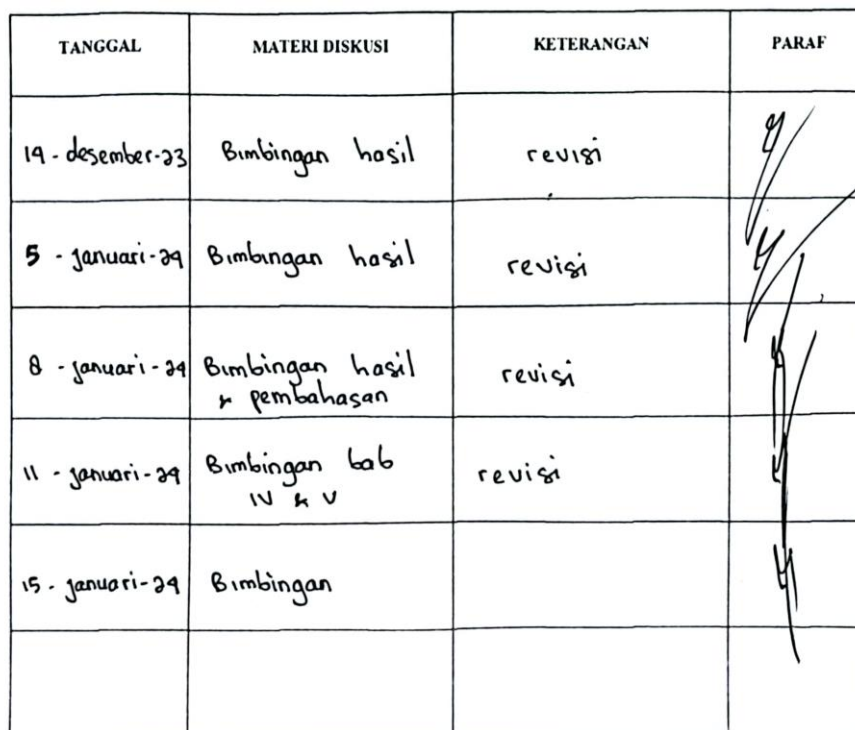 TANGGAL MATERI DISKUSI KETERANGAN PARAF
14 - desember - 23 Bimbingan hasil revisi
5 - januari - 24 Bimbingan hasil revisi
8 - januari - 24 Bimbingan hasil revisi
& pembahasan
11 - januari - 24 Bimbingan bab revisi
IV & V
15 - januari - 24 Bimbingan